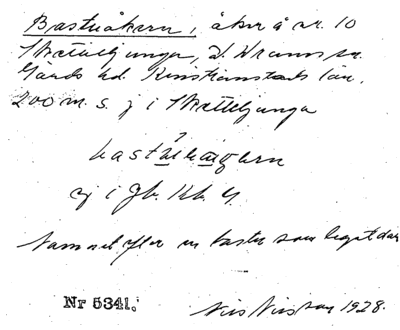 Bastuåkern, åker å nr. 10
Skättiljunga, V. Vram sn.
Gärds hd. Kristianstads län.
200 m. s. j i Skättiljunga
ej i Jb. Kb. G.
Namnet efter en bastu som legat där
Nr 5341.
Nils Nilsson 1928.